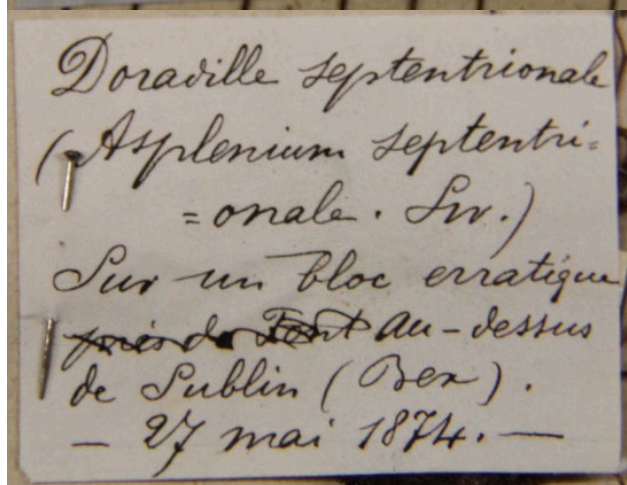 Doradille septentrionale
(Asplenium septentri=
=onale. Sw.)
Sur un bloc erratique
près de Font au-dessus
de Sublin (Bex).
— 27 mai 1874. —